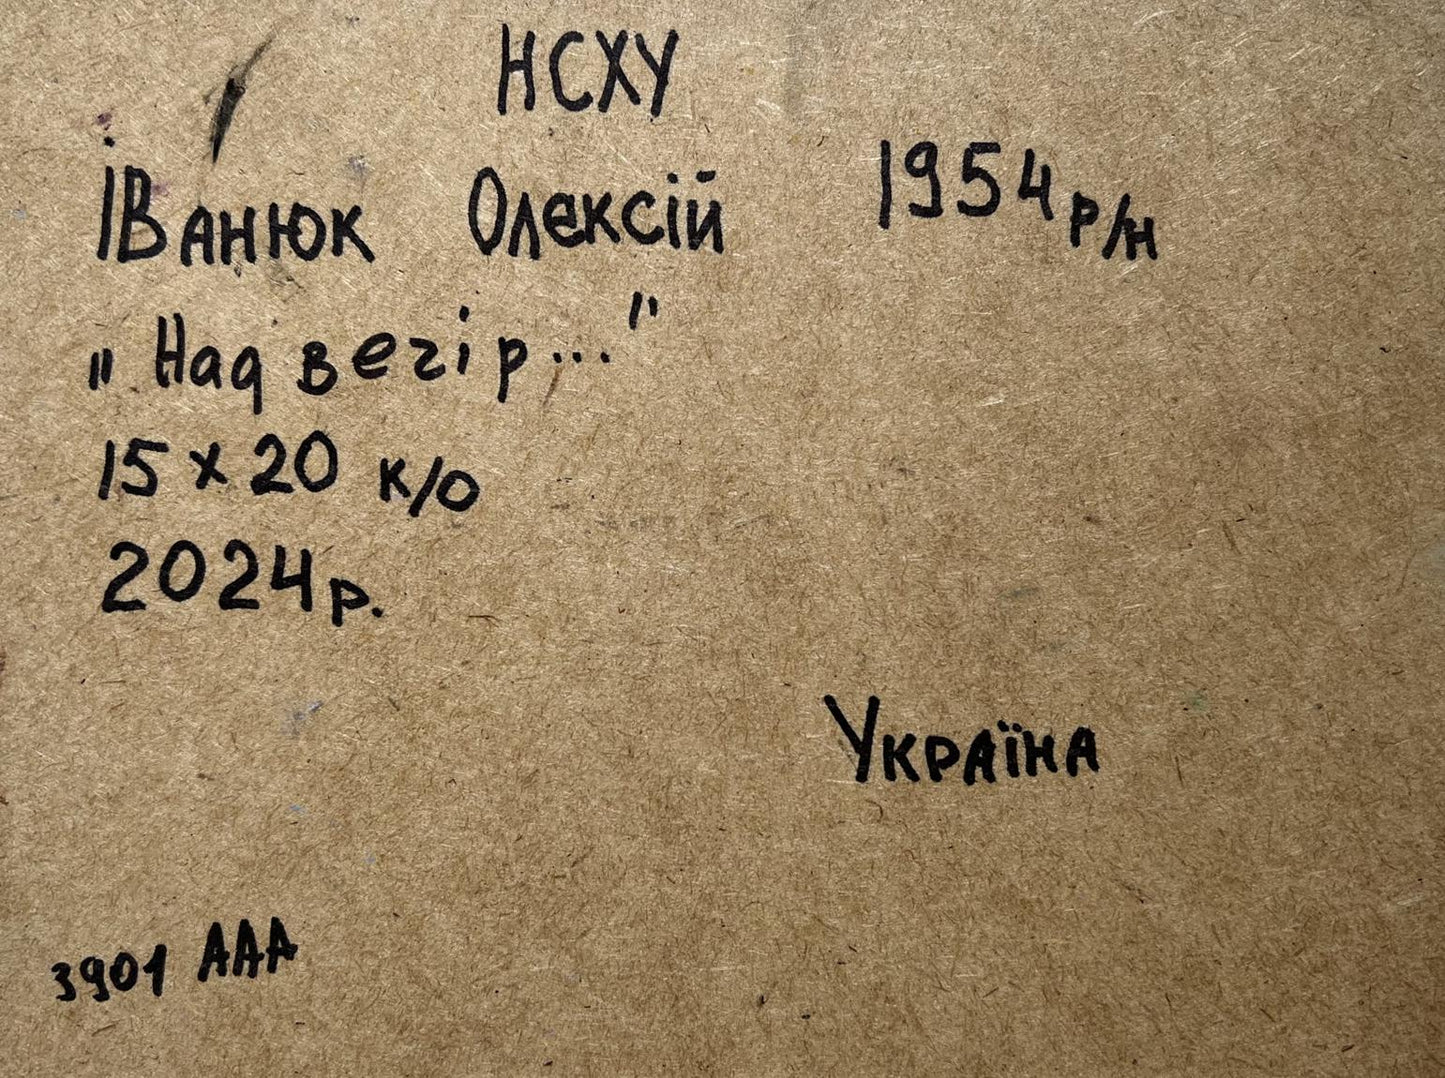 НСХУ
Іванюк Олексій 1954 р/н
„Над вечір..."
15 х 20 к/о
2024 р.
Україна
3901 ААА